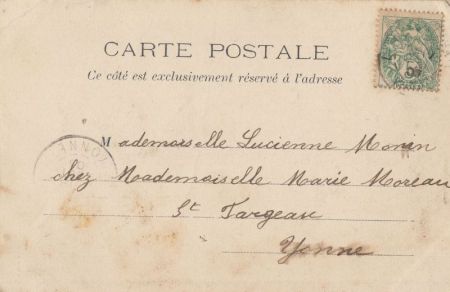 CARTE POSTALE
Ce côté est exclusivement réservé à l'adresse
Mademoiselle Lucienne Monin
chez Mademoiselle Marie Moreau
St Fargeau
Yonne
YONNE